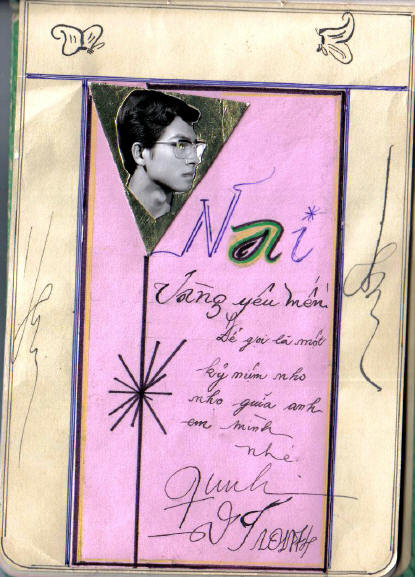 Nai
Vàng yêu mến
Để gọi là một
kỷ niệm nho
nho giữa anh
em mình
nhé
Quul